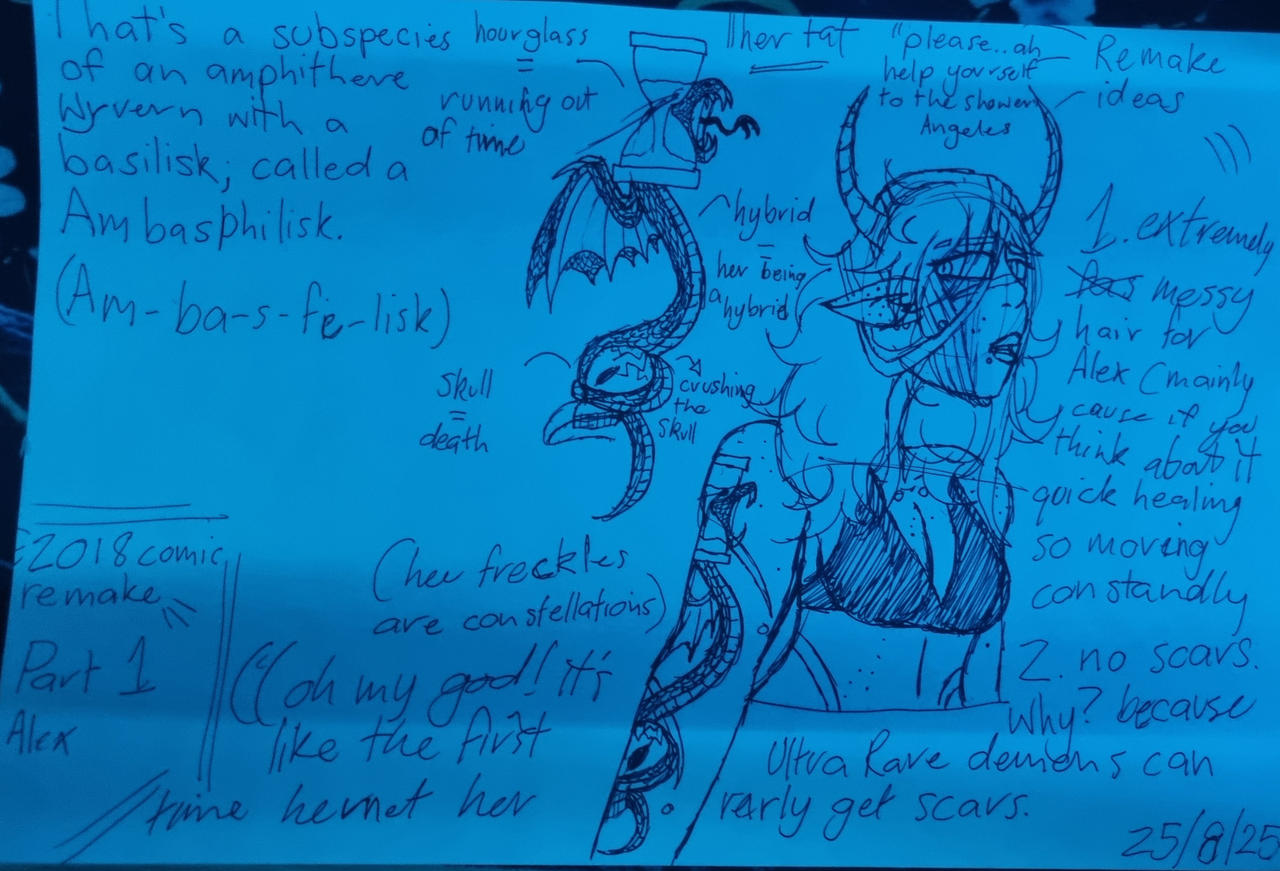 That's a subspecies
of an amphithere
Wyvern with a
basilisk; called a
Ambasphilisk.
(Am-ba-s-fe-lisk)
hourglass
=
running out
of time
her tat
"please..ah
help yourself
to the shower
Angeles
Remake
ideas
hybrid
=
her being
a hybrid
skull
=
death
crushing
the
skull
1. extremely
messy
hair for
Alex (mainly
cause if you
think about it
quick healing
so moving
constandly
2. no scars.
Why? because
Ultra Rare demons can
rarly get scars.
2018 comic
remake
Part 1
Alex
(her freckles
are constellations)
((oh my god! it's
like the first
time
her
25/8/25